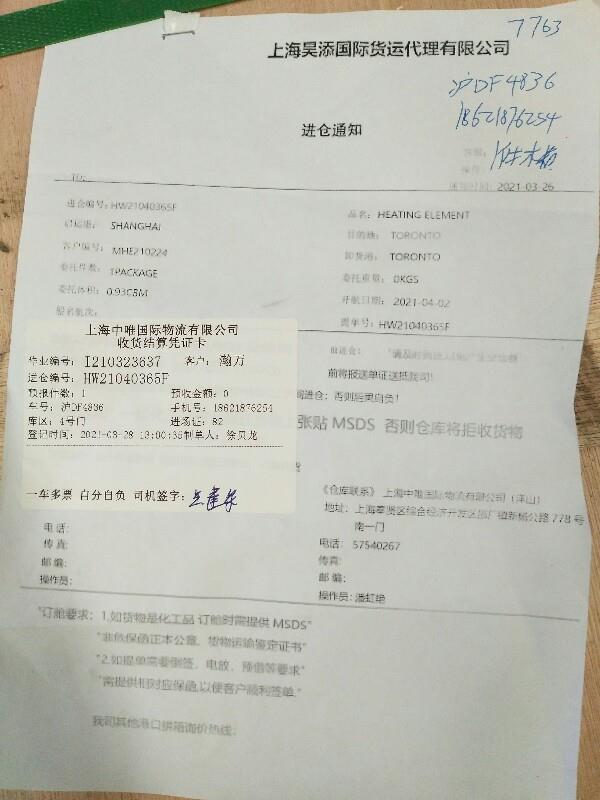 7763
上海昊添国际货运代理有限公司
沪DF4836
18621876254
进仓通知
2021-03-26
TO:
进仓编号: HW21040365F
品名: HEATING ELEMENT
启运港: SHANGHAI
目的地: TORONTO
客户编号: MHE210224
卸货港: TORONTO
委托件数: 1PACKAGE
委托重量: 0KGS
委托体积: 0.93CBM
开航日期: 2021-04-02
船名航次:
提单号: HW21040365F
上海中唯国际物流有限公司
收货结算凭证卡
作业编号: I210323637 客户: 瀚万
进仓编号: HW21040365F
预报件数: 1 预收金额: 0
车号: 沪DF4836 手机号: 18621876254
库区: 4号门 进场证: 82
登记时间: 2021-03-28 13:00:35制单人: 徐贝龙
一车多票 自分自负 司机签字:
前进仓:
前将报送单证送抵我司!
进仓; 否则后果自负!
张贴 MSDS 否则仓库将拒收货物
《仓库联系》 上海中唯国际物流有限公司 (洋山)
地址: 上海奉贤区综合经济开发区邵厂镇新杨公路 778 号
南一门
电话:
电话: 57540267
传真:
传真:
邮编:
邮编:
操作员:
操作员: 潘虹艳
"订舱要求: 1.如货物是化工品 订舱时需提供 MSDS"
"非危保函正本公章, 货物运输鉴定证书"
"2.如提单需要倒签、电放、预借等要求"
"需提供相对应保函,以便客户顺利签单."
我司其他港口拼箱询价热线: